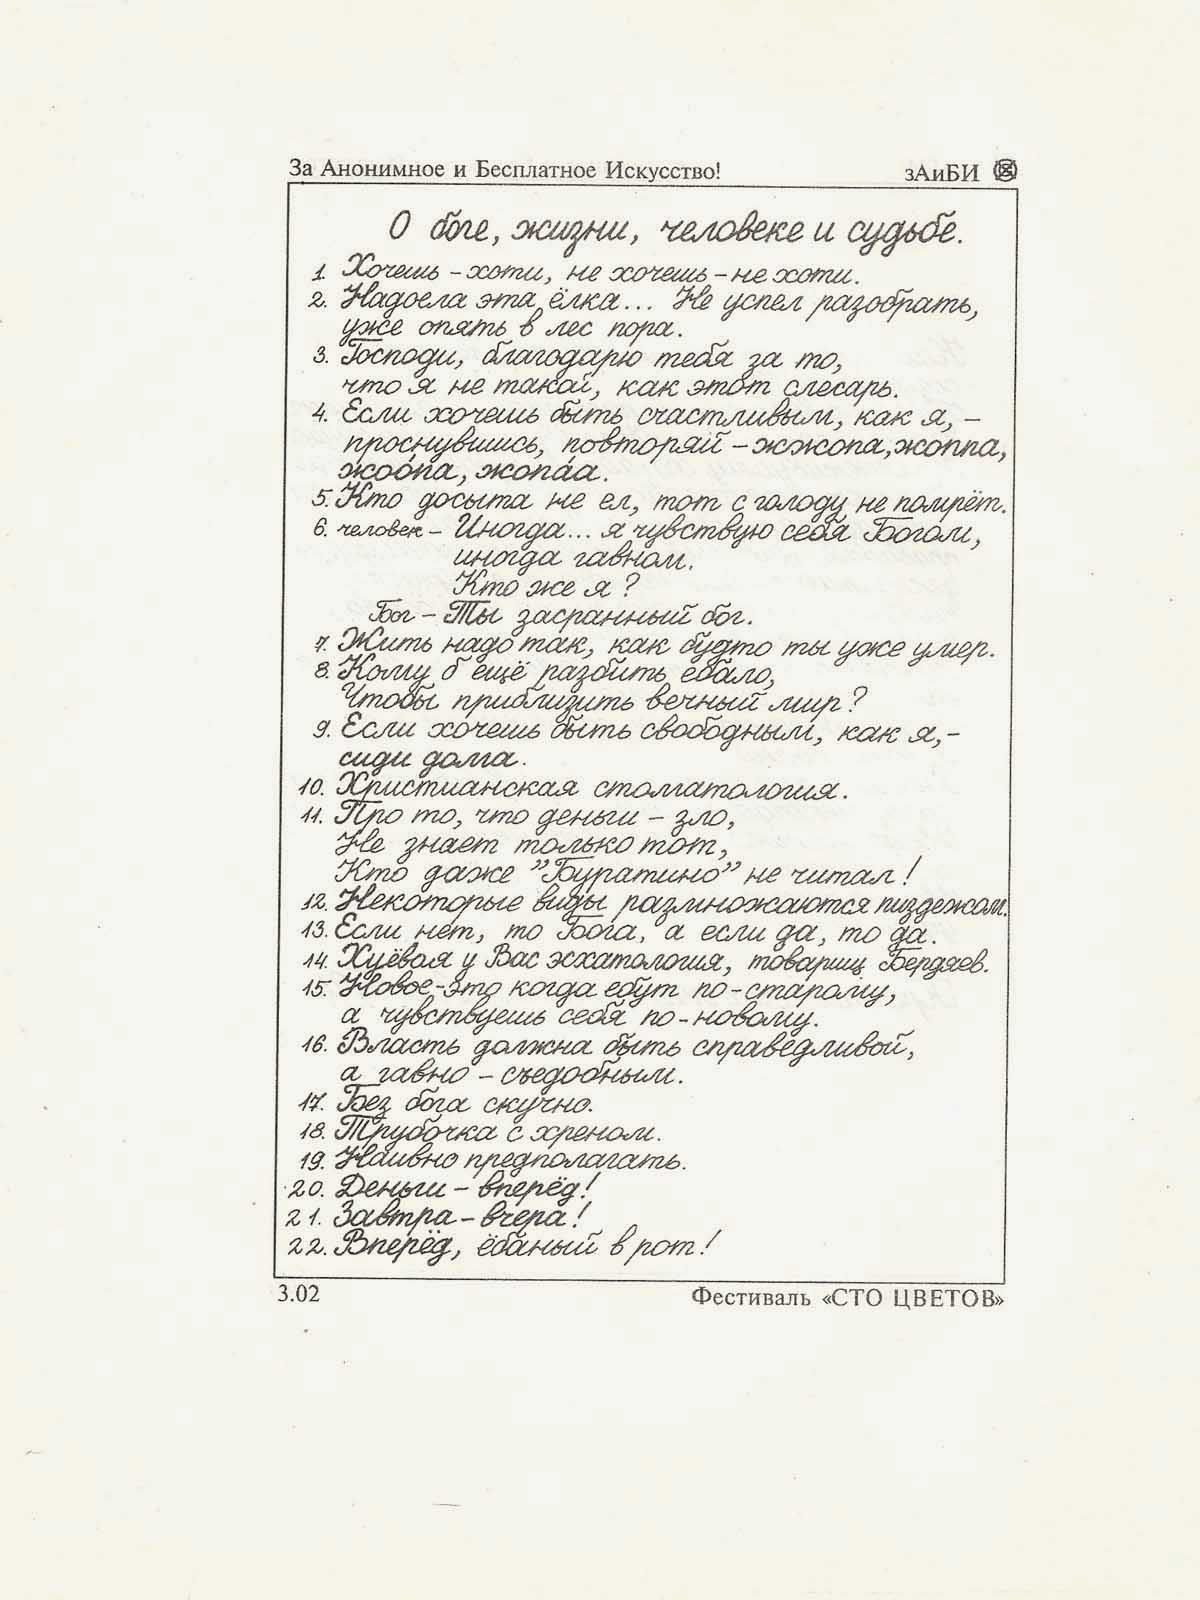 За Анонимное и Бесплатное Искусство!
зАиБИ
О боге, жизни, человеке и судьбе.
1. Хочешь – хоти, не хочешь – не хоти.
2. Надоела эта ёлка... Не успел разобрать,
уже опять в лес пора.
3. Господи, благодарю тебя за то,
что я не такой, как этот слесарь.
4. Если хочешь быть счастливым, как я, –
проснувшись, повторяй – жжопа, жоппа,
жоо́па, жопа́а.
5. Кто досыта не ел, тот с голоду не помрёт.
6. человек – Иногда... я чувствую себя Богом,
иногда гавном.
Кто же я?
Бог – Ты засранный бог.
7. Жить надо так, как будто ты уже умер.
8. Кому б ещё разбить ебало,
Чтобы приблизить вечный мир?
9. Если хочешь быть свободным, как я, –
сиди долга.
10. Христианская стоматология.
11. Про то, что деньги – зло,
Не знает только тот,
Кто даже "Буратино" не читал!
12. Некоторые виды размножаются пиздежом.
13. Если нет, то Бога, а если да, то да.
14. Хуёвая у Вас эсхатология, товарищ Бердяев.
15. Новое – это когда ебут по-старому,
а чувствуешь себя по-новому.
16. Власть должна быть справедливой,
а гавно – съедобным.
17. Без бога скучно.
18. Трубочка с хреном.
19. Наивно предполагать.
20. Деньги – вперёд!
21. Завтра – вчера!
22. Вперёд, ёбаный в рот!
3.02
Фестиваль «СТО ЦВЕТОВ»